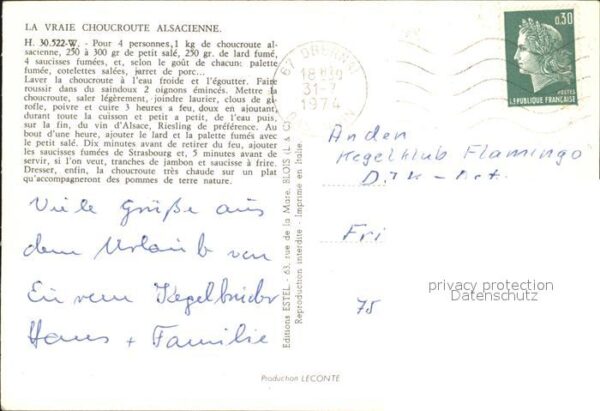 LA VRAIE CHOUCROUTE ALSACIENNE.
H. 30.522-W. - Pour 4 personnes, 1 kg de choucroute al-
sacienne, 250 à 300 gr de petit salé, 250 gr. de lard fumé,
4 saucisses fumées, et, selon le goût de chacun: palette
fumée, cotelettes salées, jarret de porc...
Laver la choucroute à l'eau froide et l'égoutter. Faire
roussir dans du saindoux 2 oignons émincés. Mettre la
choucroute, saler légèrement, joindre laurier, clous de gi-
rofle, poivre et cuire 3 heures a feu, doux en ajoutant,
durant toute la cuisson et petit a petit, de l'eau puis,
sur la fin, du vin d'Alsace, Riesling de préférence. Au
bout d'une heure, ajouter le lard et la palette fumés avec
le petit salé. Dix minutes avant de retirer du feu, ajouter
les saucisses fumées de Strasbourg et, 5 minutes avant de
servir, si l'on veut, tranches de jambon et saucisse à frire.
Dresser, enfin, la choucroute très chaude sur un plat
qu'accompagneront des pommes de terre nature.
Viele Grüße aus
dem Urlaub von
Eurem Kegelbruder
Hans + Familie
Editions ESTEL - 63, rue de la Mare, BLOIS (L. & C.)
Reproduction interdite - Imprime en Italie.
Production LECONTE
67 OBERNAI
18 H
31-7
1974
0,30
POSTES
RÉPUBLIQUE FRANÇAISE
An den
Kegelklub Flamingo
Fri
75
privacy protection
Datenschutz